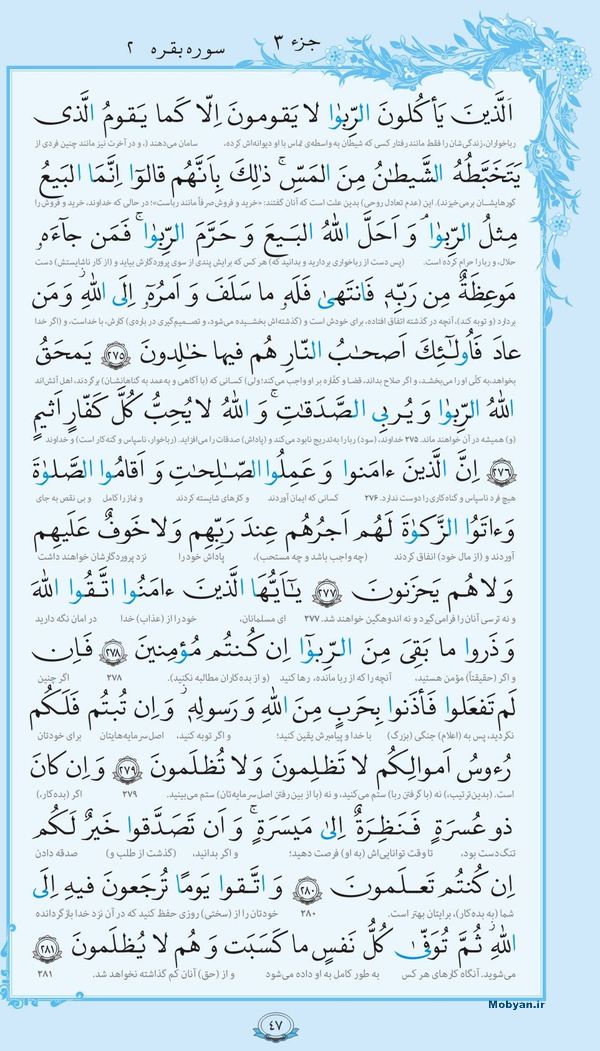 جزء ۳
سوره بقره ۲
اَلَّذینَ یَأکُلونَ الرِّبوٰا لا یَقومونَ اِلّا کَما یَقومُ الَّذی
رباخواران، زندگی‌شان را فقط مانند رفتار کسی که شیطان به واسطه‌ی تماس با او دیوانه‌اش کرده، سامان می‌دهند (، و در آخرت نیز مانند چنین فردی از
یَتَخَبَّطُهُ الشَّیطانُ مِنَ المَسِّ ۚ ذٰلِکَ بِاَنَّهُم قالوٓا اِنَّمَا البَیعُ
گورهایشان برمی‌خیزند). این (عدم تعادل روحی) بدین علت است که آنان گفتند: «خرید و فروش صرفاً مانند رباست»؛ در حالی که خداوند، خرید و فروش را
مِثلُ الرِّبوٰا ۗ وَ اَحَلَّ اللّٰهُ البَیعَ وَ حَرَّمَ الرِّبوٰا ۚ فَمَن جآءَهٗ
حلال، و ربا را حرام کرده است. (پس دست از رباخواری بردارید و بدانید که) هر کس که برایش پندی از سوی پروردگارش بیاید و (از کار ناشایستش) دست
مَوعِظَةٌ مِن رَبِّهٖ فَانتَهیٰ فَلَهٗ ما سَلَفَ وَ اَمرُهٗٓ اِلَی اللّٰهِ ۖ وَ مَن
بردارد (و توبه کند)، آنچه در گذشته اتفاق افتاده، برای خودش است و (گذشته‌اش بخشیده می‌شود، و تصمیم‌گیری در باره‌ی) کارش، با خداست، و (اگر خدا
عادَ فَاُولٰٓئِکَ اَصحٰبُ النّارِ هُم فیها خالِدونَ ۲۷۵ یَمحَقُ
بخواهد، به کلّی او را می‌بخشد، و اگر صلاح بداند، قضا و کفّاره بر او واجب می‌کند؛ ولی) کسانی که (با آگاهی و به عمد به گناهانشان) برگردند، اهل آتش‌اند
اللّٰهُ الرِّبوٰا وَ یُربِی الصَّدَقٰتِ ۗ وَ اللّٰهُ لا یُحِبُّ کُلَّ کَفّارٍ اَثیمٍ
(و) همیشه در آن خواهند ماند. ۲۷۵ خداوند، (سود) ربا را به‌تدریج نابود می‌کند و (پاداش) صدقات را می‌افزاید. (رباخوار، ناسپاس و گنه‌کار است) و خداوند
۲۷۶ اِنَّ الَّذینَ ءامَنوا وَ عَمِلُوا الصّٰلِحٰتِ وَ اَقامُوا الصَّلوٰةَ
هیچ فرد ناسپاس و گناه‌کاری را دوست ندارد. ۲۷۶ کسانی که ایمان آوردند و کارهای شایسته کردند و نماز را کامل و بی نقص به جای
وَ ءاتَوُا الزَّکوٰةَ لَهُم اَجرُهُم عِندَ رَبِّهِم وَ لا خَوفٌ عَلَیهِم
آوردند و (از مال خود) انفاق کردند (چه واجب باشد و چه مستحب)، پاداش خود را نزد پروردگارشان خواهند داشت
وَ لا هُم یَحزَنونَ ۲۷۷ یٰٓاَیُّهَا الَّذینَ ءامَنُوا اتَّقُوا اللّٰهَ
و نه ترسی آنان را فرا می‌گیرد و نه اندوهگین خواهند شد. ۲۷۷ ای مسلمانان، خود را از (عذاب) خدا در امان نگه دارید
وَ ذَروا ما بَقِیَ مِنَ الرِّبوٰٓا اِن کُنتُم مُؤمِنینَ ۲۷۸ فَاِن
و اگر (حقیقتاً) مؤمن هستید، آنچه را که از ربا مانده، رها کنید (و از بده‌کاران مطالبه نکنید). ۲۷۸ اگر چنین
لَم تَفعَلوا فَأذَنوا بِحَربٍ مِنَ اللّٰهِ وَ رَسولِهٖ ۖ وَ اِن تُبتُم فَلَکُم
نکردید، پس به (اعلام) جنگی (بزرگ) با خدا و پیامبرش یقین کنید؛ و اگر توبه کنید، اصل سرمایه‌هایتان برای خودتان
رُءوسُ اَموالِکُم لا تَظلِمونَ وَ لا تُظلَمونَ ۲۷۹ وَ اِن کانَ
است. (بدین‌ترتیب)، نه (با گرفتن ربا) ستم می‌کنید، و نه (با از بین رفتن اصل سرمایه‌تان) ستم می‌بینید. ۲۷۹ اگر (بده‌کار)،
ذو عُسرَةٍ فَنَظِرَةٌ اِلیٰ مَیسَرَةٍ ۚ وَ اَن تَصَدَّقوا خَیرٌ لَکُم
تنگ‌دست بود، تا وقت توانایی‌اش (به او) فرصت دهید؛ و اگر بدانید، (گذشت از طلب و) صدقه دادن
اِن کُنتُم تَعلَمونَ ۲۸۰ وَ اتَّقوا یَومًا تُرجَعونَ فیهِ اِلَی
شما (به بده‌کار)، برایتان بهتر است. ۲۸۰ خودتان را از (سختی) روزی حفظ کنید که در آن نزد خدا بازگردانده
اللّٰهِ ۖ ثُمَّ تُوَفّیٰ کُلُّ نَفسٍ ما کَسَبَت وَ هُم لا یُظلَمونَ ۲۸۱
می‌شوید. آنگاه کارهای هر کس به طور کامل به او داده می‌شود و از (حق) آنان کم گذاشته نخواهد شد. ۲۸۱
Mobyan.ir
۴۷